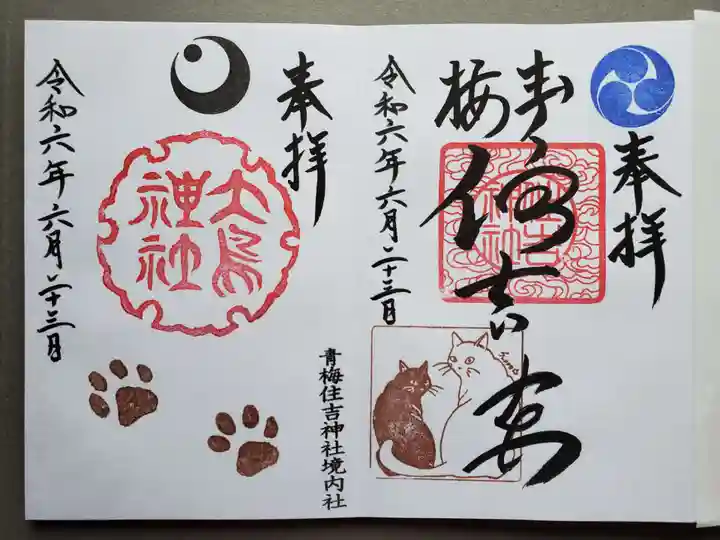 奉拝
青梅
住吉神社
令和六年六月二十三日
奉拝
大鳥神社
青梅住吉神社境内社
令和六年六月二十三日